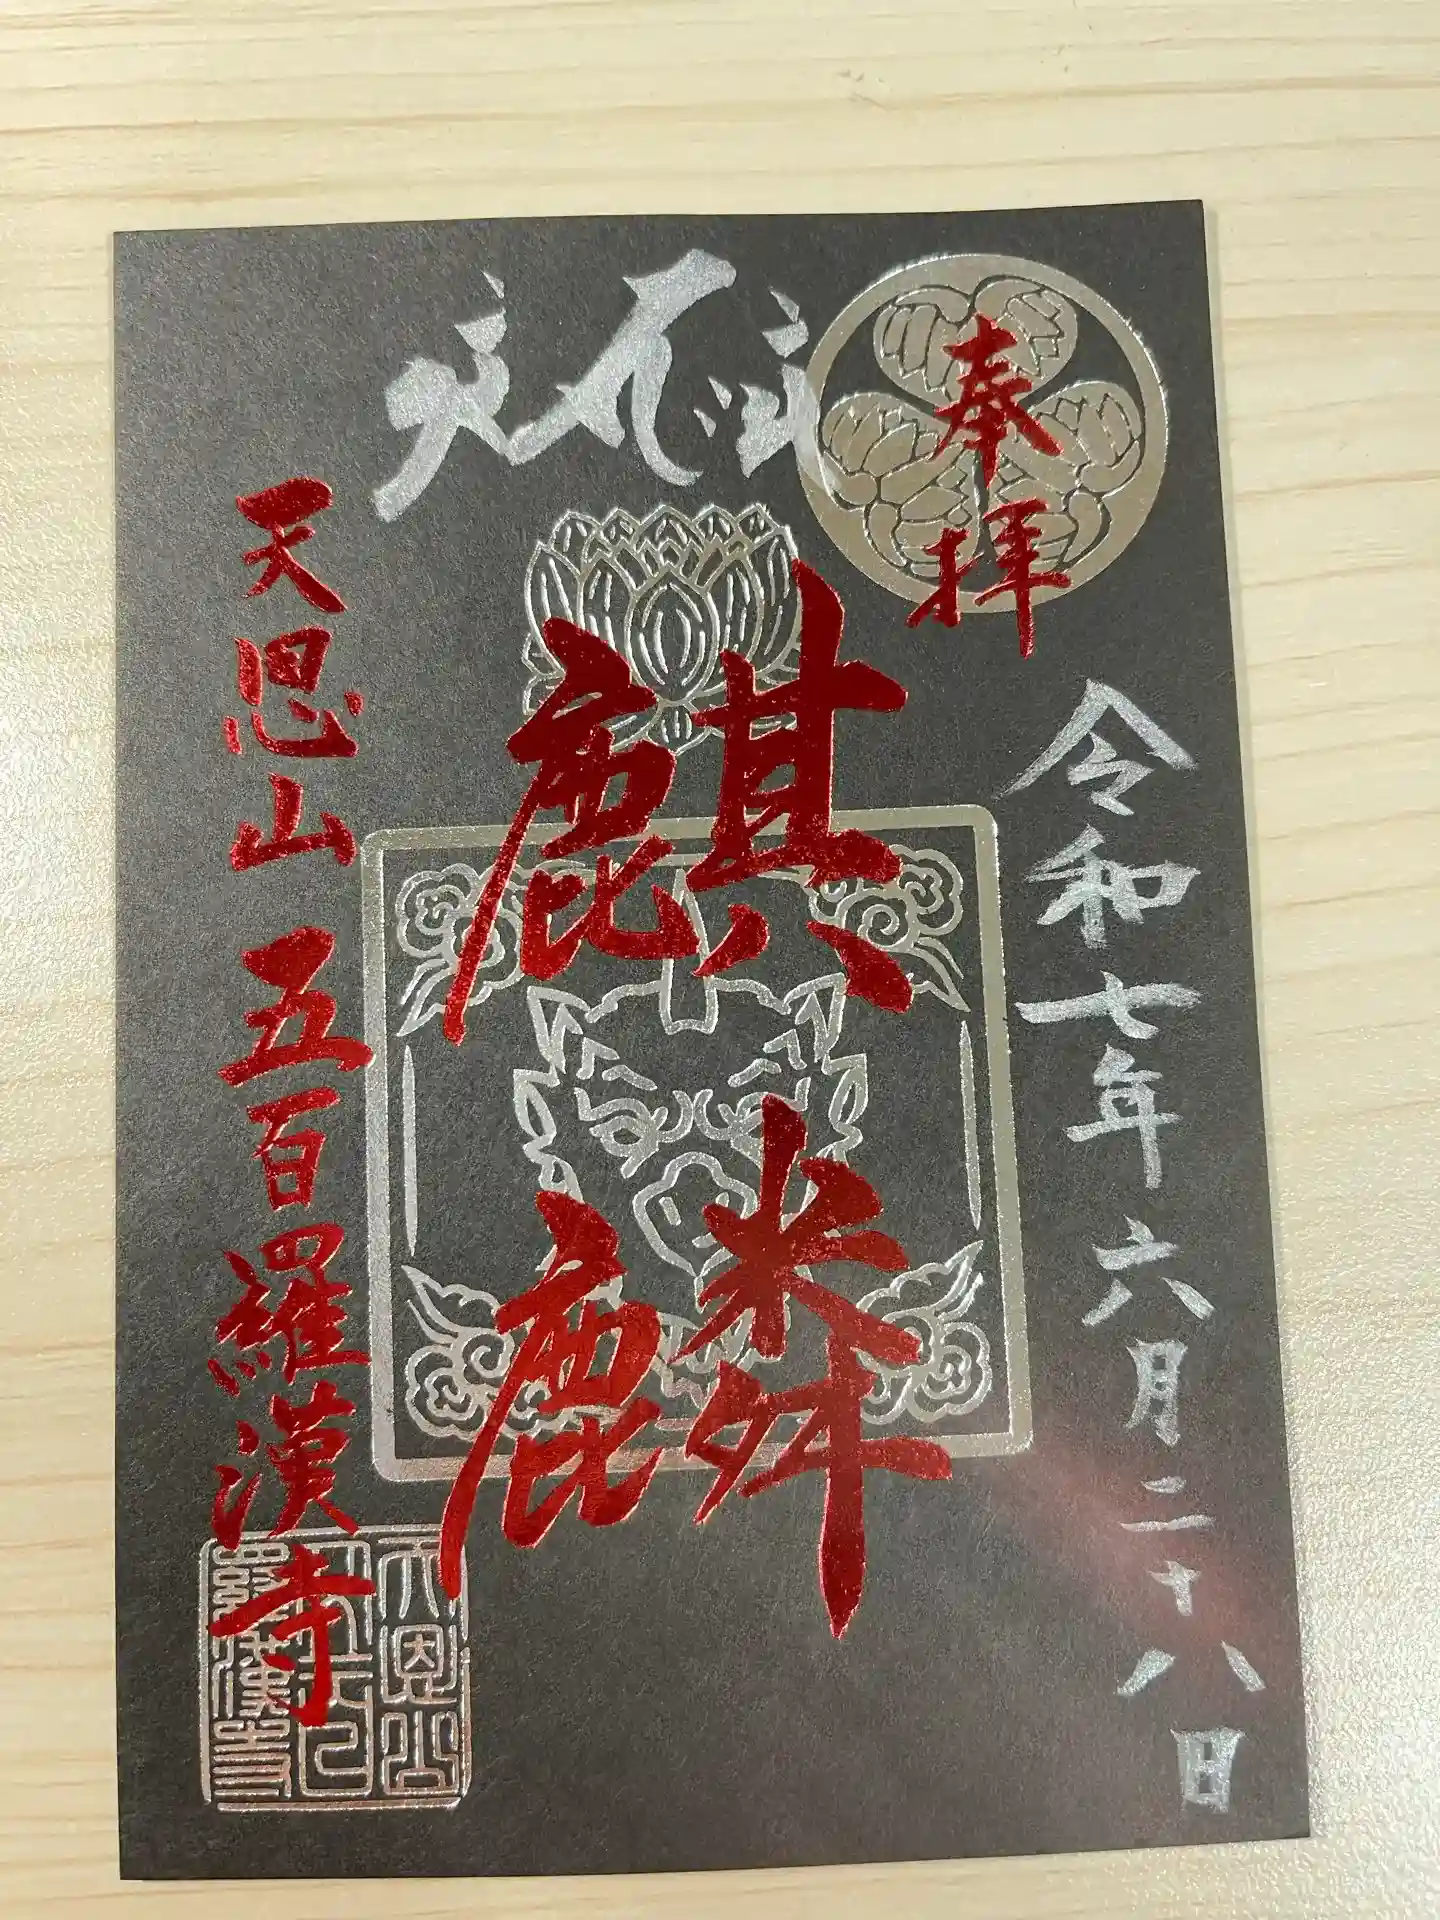 奉拝
令和七年六月二十八日
麒麟
天恩山 五百羅漢寺
天恩山
五百
羅漢寺